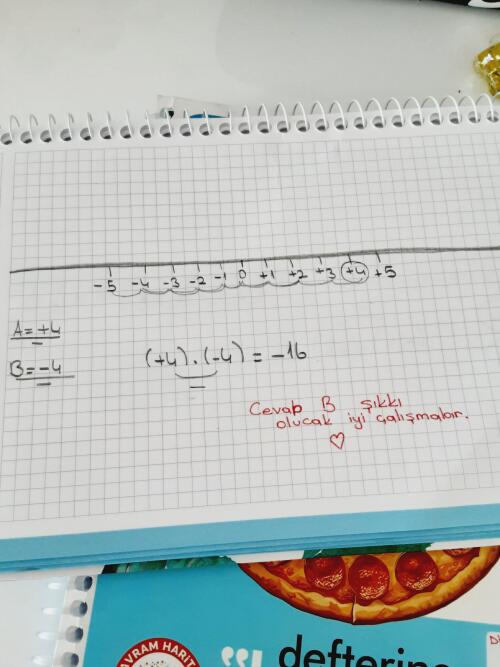 -5 -4 -3 -2 -1 0 +1 +2 +3 +4 +5
A=+4
B=-4
(+4).(-4) = -16
Cevab B şıkkı
olucak iyi çalışmalar.
AVRAM HARİT
"defterine